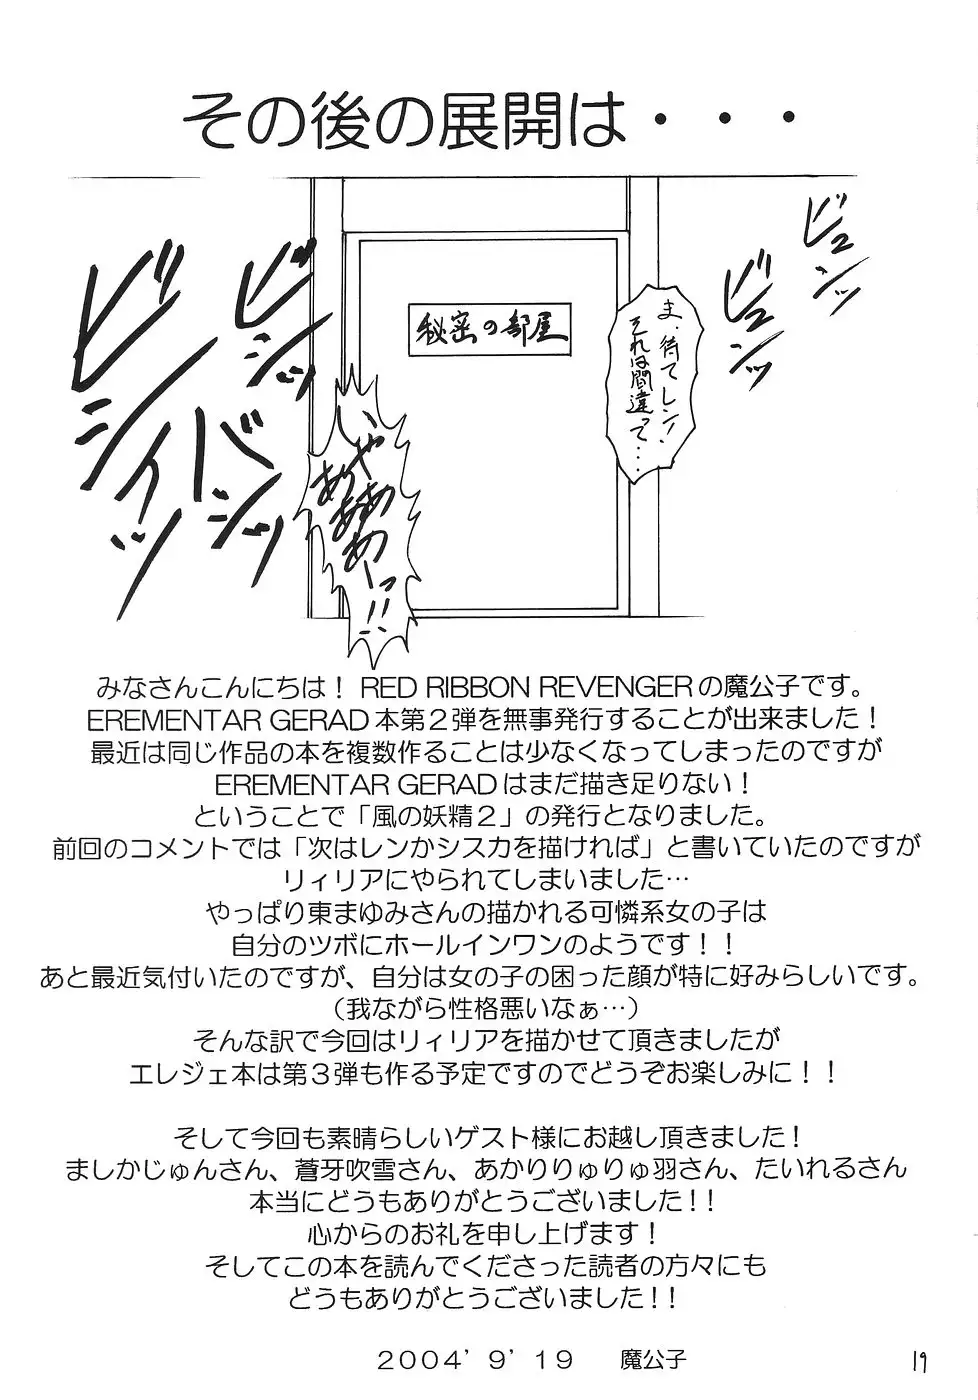 その後の展開は・・・
ビュンッ
ビュンッ
ま、待てレン!
それは間違って・・・・
秘密の部屋
いやあああああーっ!!
ビシッ
バシッ
ビシィッ
みなさんこんにちは！RED RIBBON REVENGERの魔公子です。
EREMENTAR GERAD本第２弾を無事発行することが出来ました！
最近は同じ作品の本を複数作ることは少なくなってしまったのですが
EREMENTAR GERADはまだ描き足りない！
ということで「風の妖精２」の発行となりました。
前回のコメントでは「次はレンかシスカを描ければ」と書いていたのですが
リィリアにやられてしまいました…
やっぱり東まゆみさんの描かれる可憐系女の子は
自分のツボにホールインワンのようです！！
あと最近気付いたのですが、自分は女の子の困った顔が特に好みらしいです。
（我ながら性格悪いなぁ…）
そんな訳で今回はリィリアを描かせて頂きましたが
エレジェ本は第３弾も作る予定ですのでどうぞお楽しみに！！
そして今回も素晴らしいゲスト様にお越し頂きました！
ましかじゅんさん、蒼牙吹雪さん、あかりりゅりゅ羽さん、たいれるさん
本当にどうもありがとうございました！！
心からのお礼を申し上げます！
そしてこの本を読んでくださった読者の方々にも
どうもありがとうございました！！
２００４’９’１９　魔公子
19